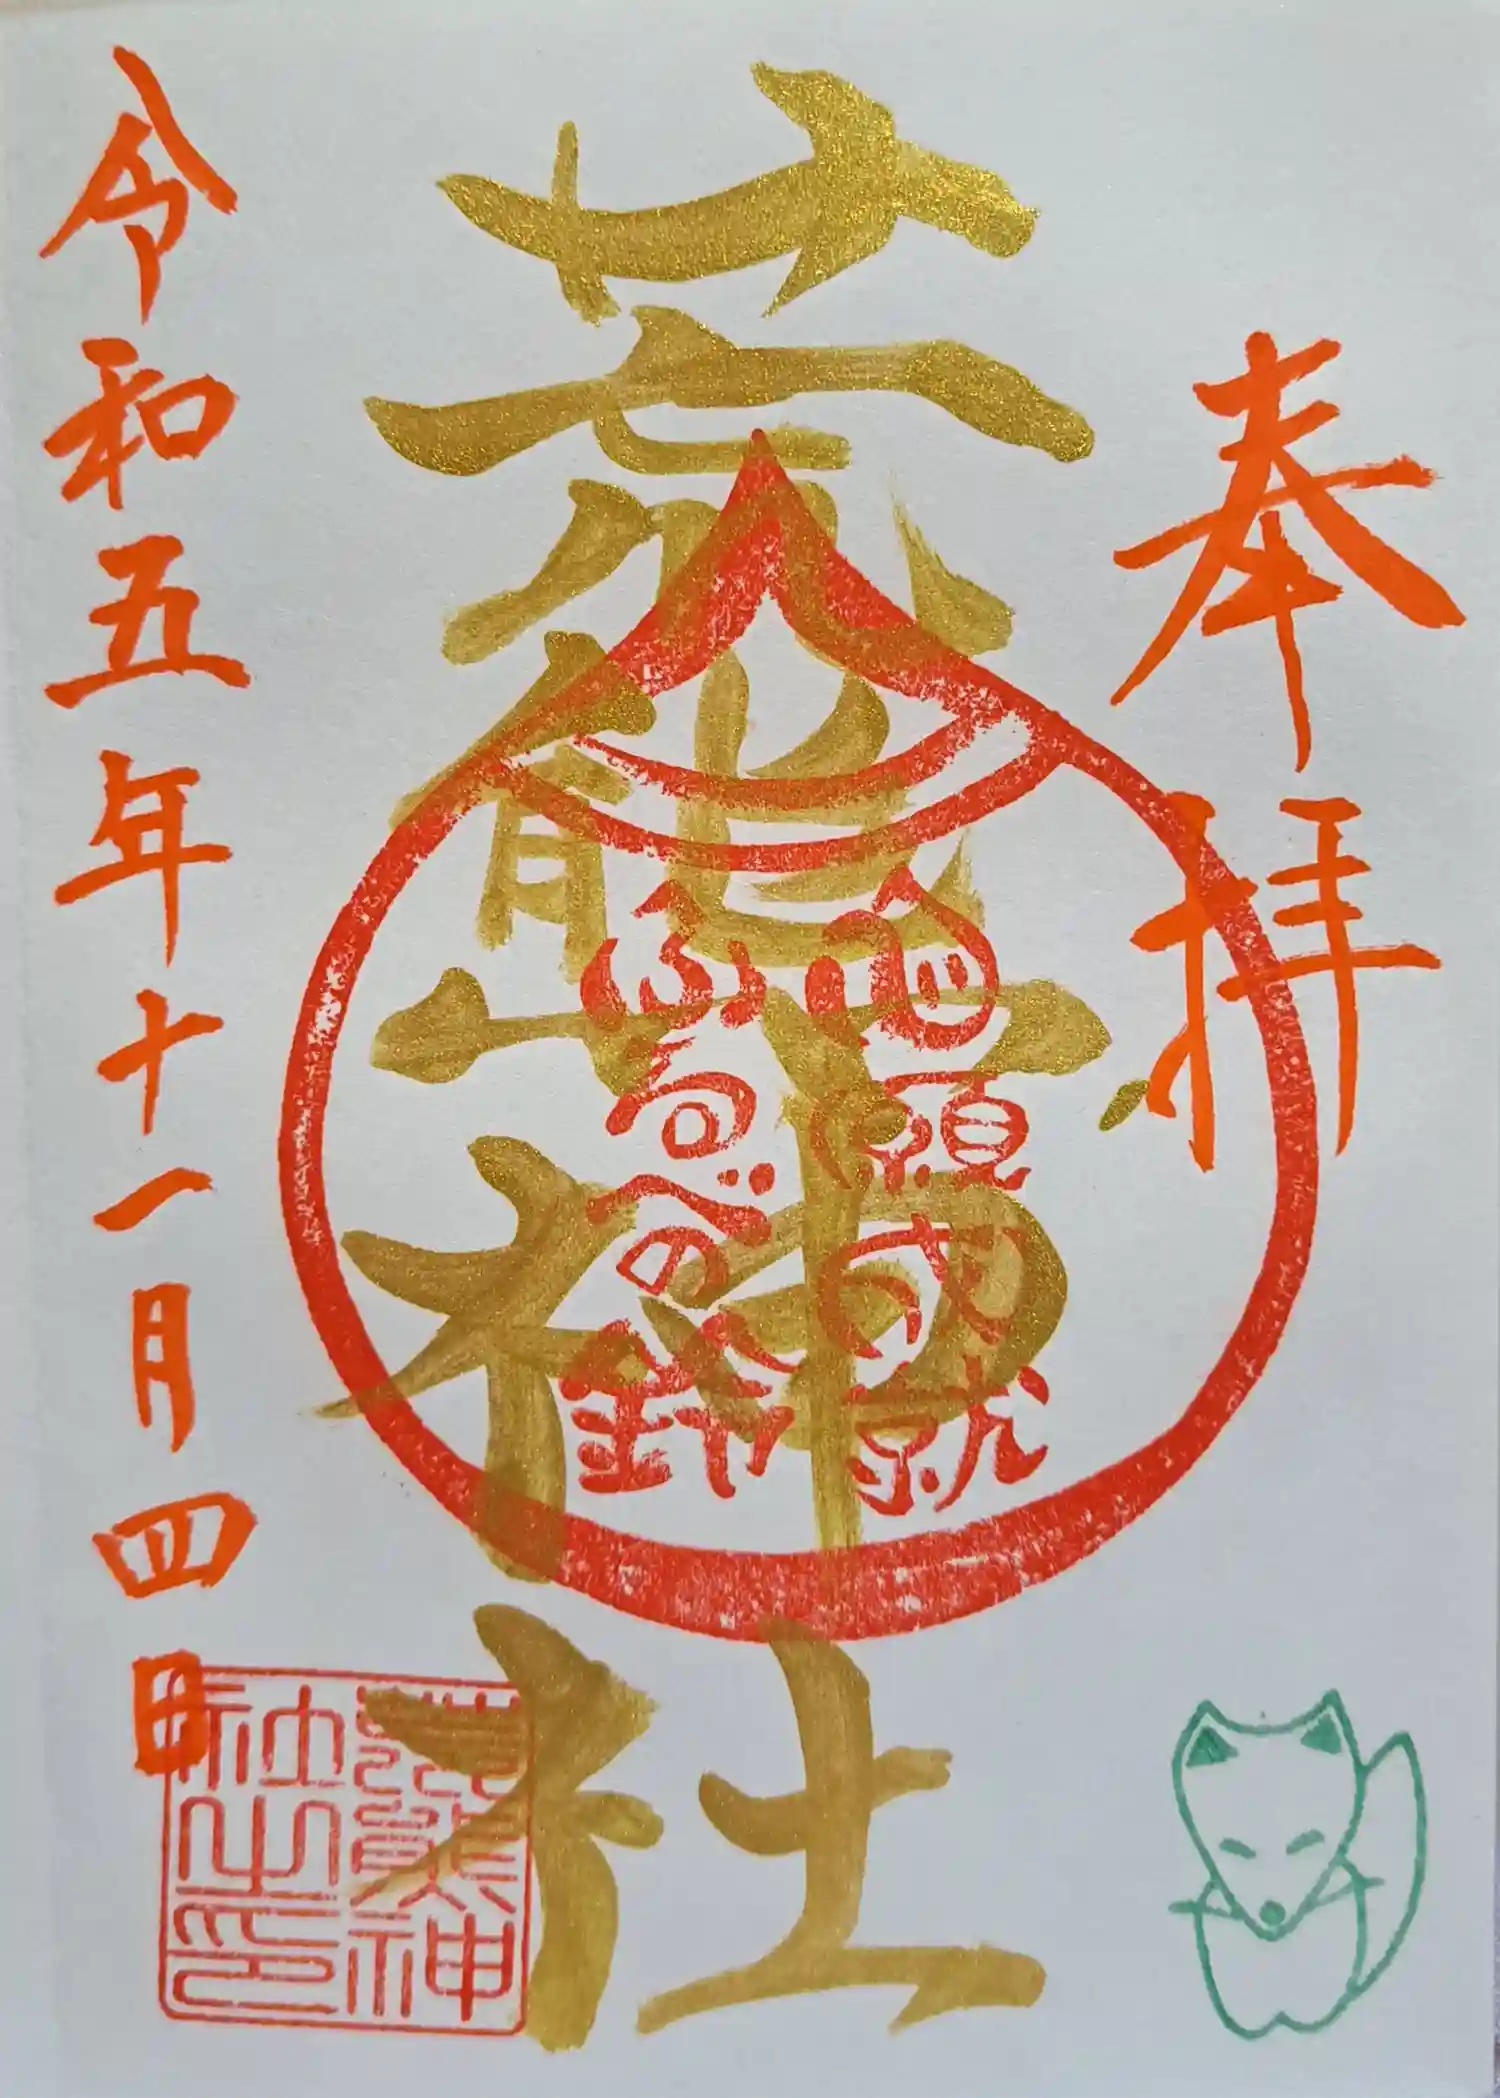 奉拝
荒熊神社
心願成就
ふるべの鈴
令和五年十一月四日
荒熊神
社之印